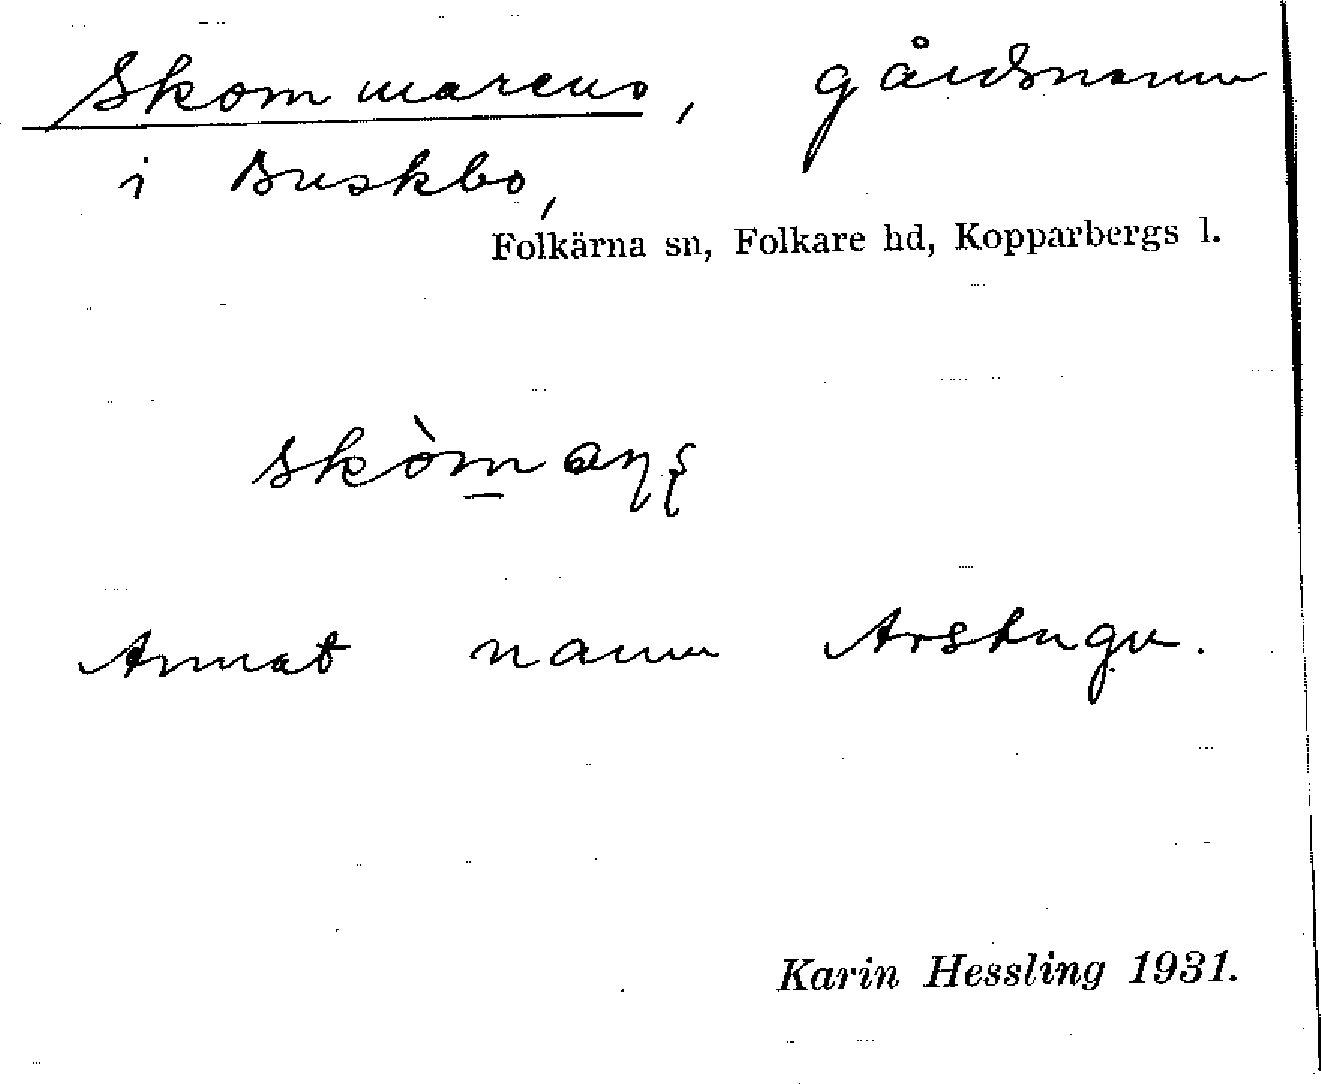 Skommarens, gårdsnamn
i Buskbo,
Folkärna sn, Folkare hd, Kopparbergs l.
Annat namn Arstugu.
Karin Hessling 1931.